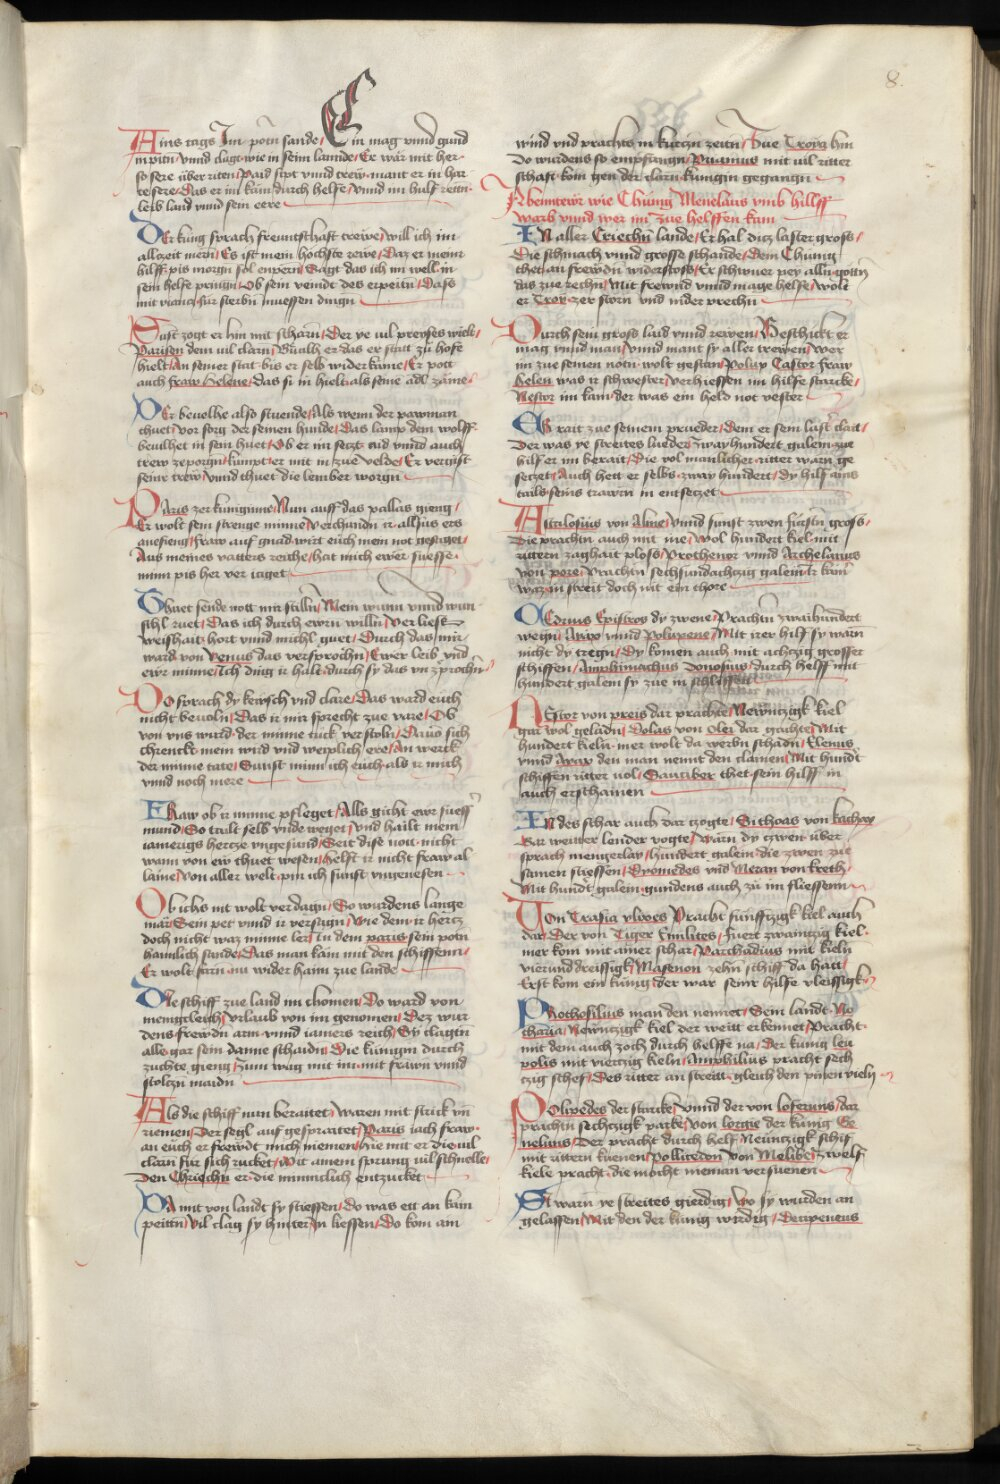 8.
Ains tags Im potn sande / Ein mag vnnd gund
in pitn / vnnd clagt wie in seim lannde / Er wär mit her
so sere über riten / Paid sipt vnnd trew mant er in har
te sere / Das er im käm durch helfe / vnnd im hulf retn
leib land vnnd sein eere
Der kung sprach freuntschaft trewe / will ich im
allczeit mern / Es ist mein höchste rewe / Daz er meiner
hilff pis morgn sol enpern / Sagt das ich im well in
sein helfe pringn / Ob sein veindt des erpeitn / Dass
mit viancz für sterbn muessen dingn
Sust zogt er hin mit scharn / Der ye vil preyses wielt /
Parisen dem vil clarn / Bualh er das er stat zu hofe
hielt / An seiner stat bis er selb wider käme / Er pott
auch fraw Helene / Das si in hielt als seine adl zäme
Der beuelhe also stuende / Als wenn der pawman
thuet / vor sorg der seinen hunde / Das lamp dem wolff
beuilhet in sein huet / Ob er im seczt aid vnnd auch
trew ze porgn / kumpt er mit in zue velde / Er vergist
seinr trew / vnnd thuet die lember worgn
Paris zer kuniginne / Nun auff das pallas gieng /
Er wolt sein strenge minne / verchundn ir allsus ers
anefieng / fraw auf gnad wirt euch mein not gesaget /
Aus meines vatters reiche / hat mich ewer suesse
minn pis her ver iaget
Thuet sende nott mir stilln / Mein wunn vnnd wun
schl ruet / Das ich durch ewrn willn / Verliese
weishait hort vnnd michl guet / Durch das mir
ward von Venus das versprochn / Ewer leib vnd
ewr minne / Ich ding ir halt durch sy das vnzprochn
Do sprach dy kewsch vnd clare / Das ward euch
nicht beuoln / Das ir mir sprecht zue vare / Ob
von vns wurd der minne tuck verstoln / Dauo sich
chrenckt mein wird vnd weiplich ere / An werck
der minne tate / Sunst minn ich euch als ir mich
vnnd noch mere
Fraw ob ir minne pfleget / Alls gicht ewr suess
mund / So trailt selb vnde weget / vnd hailt mein
iamerigs hertze vngesund / Seit dise not nicht
wann von ew thuet wesen / helft ir nicht fraw al
laine / von aller welt pin ich sunst vngenesen
Ob ichs nit wolt verdagn / So wurdens lange
mär / Sein pet vnnd ir versagn / Wie dem ir hertz
doch nicht waz minne ler / In dem paris sein potn
haimlich sande / Das man käm mit den schiffenn /
Er wolt farn nu wider haim zue lande
Die schiff zue land im chomen / Do ward von
menigcleich / vrlaub von im genomen / Dez wur
dens frewdn arm vnnd iamers reich / Sy clagtn
alle gar sein danne schaidn / Die kunigin durch
zuchte gieng / zum wag mit im mit frawn vnnd
stolczn maidn
Als die schiff nun beraitet / waren mit strick vn
riemen / Der segl auf gespraitet / Paris iach fraw
an euch er frewdt mich niemen / hie mit er die vil
clarn für sich zucket / Mit ainem sprung vil schnelle /
Den Chriechn er die minnclich entzucket
Da mit von landt sy stiessen / do was ett an kain
peittn / Vil clag sy hinter in liessen / Do kom am
wind vnd prachte in kurczn zeitn / Zue Troya hin
Do wurdens so empfangn / Priamus mit vil ritter
schaft kom gen der clarn kunigin gegangn
Abenntewr wie Chunig Menelaus vmb hillff
warb vnnd wer im zue helffen kam
In aller Criechn lande / Erhal ditz laster gross /
Die schmach vnnd grosse schande / dem Chunig
thet an frewdn widerstoss / Er schwuer pey alln gottn
das zue rechn / Mit frewnd vnnd mage helfe / wolt
er Troy zer störn vnd nider prechn
Durch sein gross laid vnnd rewen / Beschickt er
mag vnnd man / vnnd mant sy aller trewen / wer
im zue seinen notn wolt gestan / Polux Castor fraw
Helen was ir schwester / verhiessen im hilfe starcke /
Nestor im kam der was ein held not vester
Er rait zue seinem prueder / Dem er sein last clait /
Der was ye streites lueder / zwayhundert galein zue
hilf er im berait / Die vol manlicher ritter warn ge
seczet / Auch hett er selbs zway hundert / dy hilf ains
tails seins trawrn in entseczet
Astulosius von Alme / vnnd sunst zwen fürstn gross /
Die prachtn auch mit ine / Wol hundert kiel mit
rittern zaghait ploss / Prothenor vnnd Archelaus
von pore / Prachtn sechsundachczig galein / Er kam
waz in streit doch nit ein thore
Cedrius Epistros dy zwene / Prachtn zwaihundert
wegn / Ayax vnnd Poluxene / Mit irer hilf sy warn
nicht dy tregn / Dy komen auch mit achczig grosser
schiffen / Amphimachus Donosius / durch helff mit
hundert galein sy zue in schliffen
Nestor von preis dar prachte / Newnczigk kiel
gar wol geladn / Dolas von Oler dar grachte / Mit
hundert kieln mer wolt da werbn schadn / Elenus
vnnd Ayax den man nennt den clainen / Mit hundt
schiffen ritter vol / Sanciber thet sein hilff in
auch erschainen
In des schar auch dar czogte / Sithoas von kachay
Bar weitter lender vogte / Wärn dy czwen über
sprach mengerlay / hundert galein die zwen zue
samen stiessen / Dyomedes vnd Meran von kreth /
Mit hundt galein gundens auch zu im fliessenn
Von Trasia vlixes / Pracht funfftzigk kiel auch
dar / Der von Tiger Emilites / fuert zwaintzig kiel
mer kom mit ainer schar / Parchadius mit kieln
vierunddreissigk / Masenon zehn schiff da hatt /
Erst kom ein kunig / der war seinr hilfe vleissigk
Prothosilius man den nennet / Sein landt No
tharia / Newntzigk kiel der weitt erkennet / Pracht
mit dem auch zoch durch helffe na / Der kunig leu
polis mit viertzig keln / Amphilius pracht sech
czig schef / Des ritter an streitt gleich den pinen vieln
Polixedes der starcke / vnnd der von loferuns / dar
prachtn sechtzigk parke / von lorgie der kunig Se
nelius / Der pracht durch helf Neuntzigk schif
mit rittern kuenen / Polliteron von Melibe / zwelf
kiele pracht die mocht nieman versuenen
Si warn ye streites gierdig / wo sy wurden an
gelassen / Mit den der kunig wirdig / Deupeneus